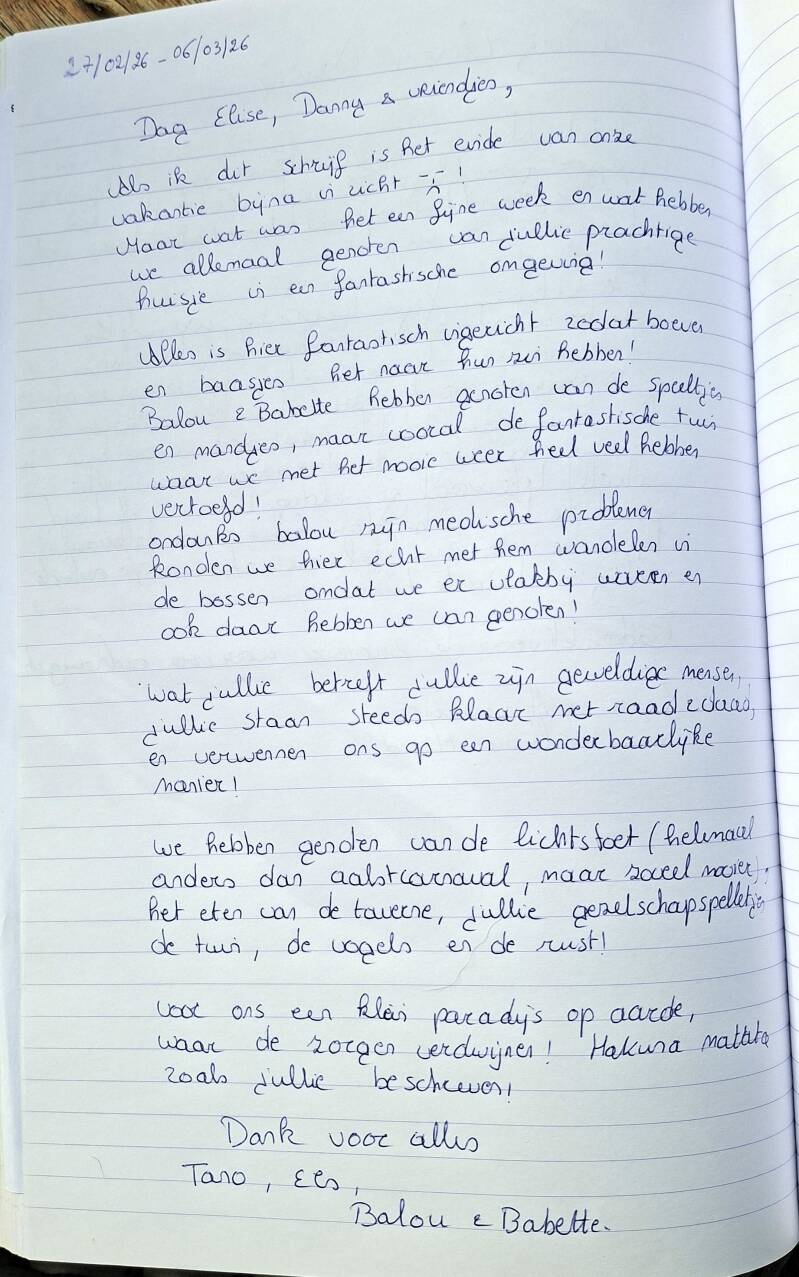 27/02/26 - 06/03/26
Dag Elise, Danny & vriendjes,
Als ik dit schrijf is het einde van onze
vakantie bijna in zicht !
Maar wat was het een fijne week en wat hebben
we allemaal genoten van jullie prachtige
huisje in een fantastische omgeving!
Alles is hier fantastisch ingericht zodat boeven
en baasjes het naar hun zin hebben!
Balou & Babette hebben genoten van de speeltjes
en mandjes, maar vooral de fantastische tuin
waar we met het mooie weer heel veel hebben
vertoefd!
ondanks balou zijn medische problemen
konden we hier echt met hem wandelen in
de bossen omdat we er vlakbij waren en
ook daar hebben we van genoten!
Wat jullie betreft jullie zijn geweldige mensen,
jullie staan steeds klaar met raad & daad,
en verwennen ons op een wonderbaarlijke
manier!
we hebben genoten van de lichtstoet (helemaal
anders dan aalstcarnaval, maar zoveel mooier),
het eten van de taverne, jullie gezelschapspelletjes
de tuin, de vogels en de rust!
voor ons een klein paradijs op aarde,
waar de zorgen verdwijnen! Hakuna mattata
zoals jullie beschreven!
Dank voor alles
Tano, Els,
Balou & Babette.